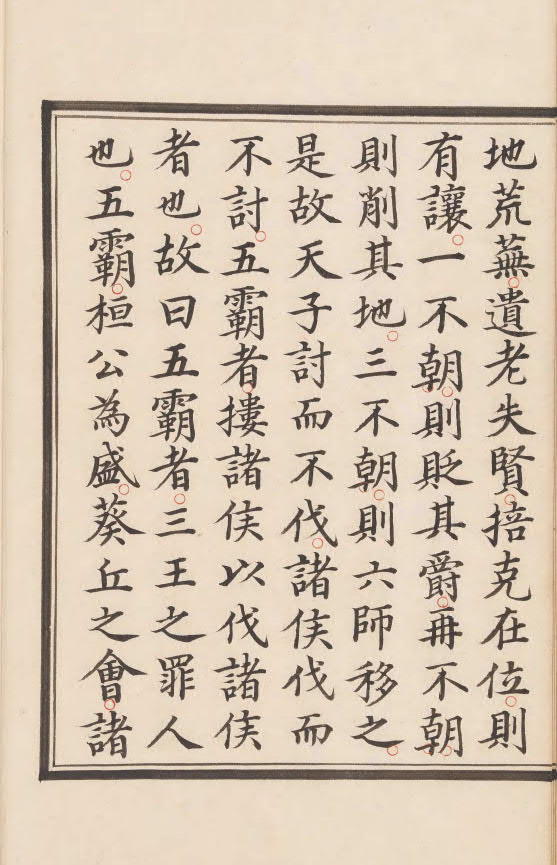 地荒蕪。遺老失賢。掊克在位。則
有讓。一不朝。則貶其爵。再不朝。
則削其地。三不朝。則六師移之。
是故天子討而不伐。諸侯伐而
不討。五霸者。摟諸侯以伐諸侯
者也。故曰五霸者。三王之罪人
也。五霸。桓公為盛。葵丘之會。諸